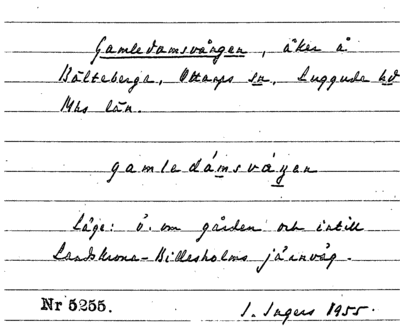 Gamledamsvången, åker å
Bälteberga, Ottarps sn, Luggude hd
Mhs län.
gamledámsváŋen
Läge: ö. om gården och intill
Landskrona-Billesholms järnväg.
Nr 5255.
I. Ingers 1955.